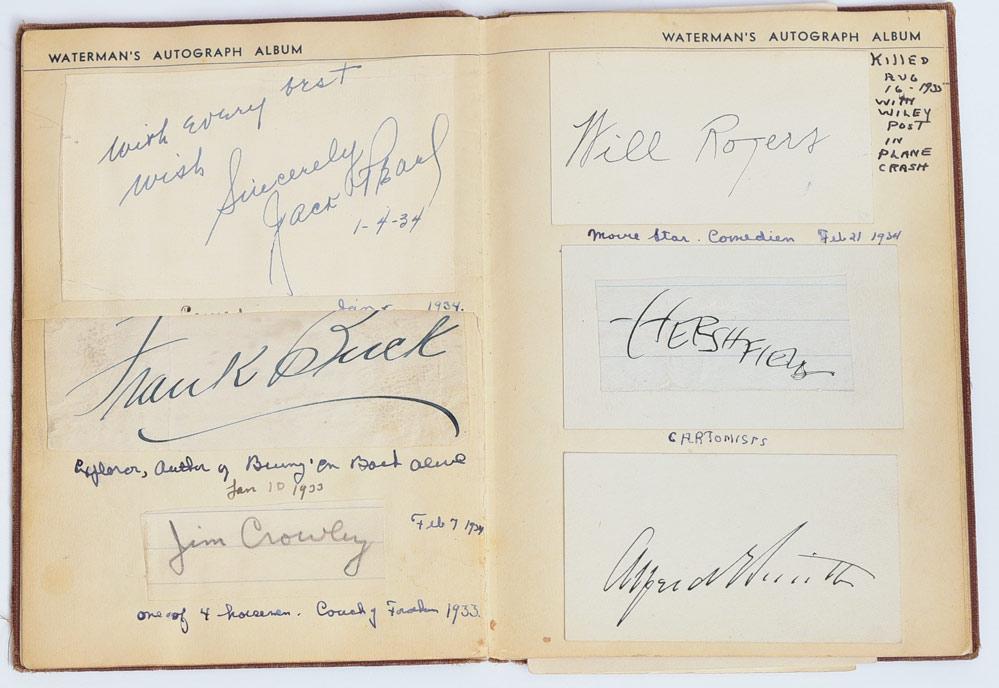 WATERMAN'S AUTOGRAPH ALBUM
with every best
wish
Sincerely
Jack Pearl
1-4-34
1934.
Frank Buck
Explorer, Author of Bring 'en Back alive
Jan 10 1933
Jim Crowley
Feb 7 1934
one of 4 horsemen. Coach of Fordham 1933.
WATERMAN'S AUTOGRAPH ALBUM
Will Rogers
KILLED
AUG
16-1935
WITH
WILEY
POST
IN
PLANE
CRASH
Movie Star. Comedien Feb 21 1934
HERSHFIELD
CARTOMISTS
Alfred E Smith